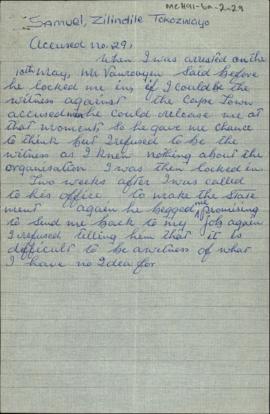 MCH91-6A-2-29
Samuel, Zilindile Tokozwayo
Accused no. 29.
When I was arrested on the
10th May, Mr Van said before
he locked me in, if I could be the
witness against the Cape Town
accused he could release me at
that moment, so he gave me chance
to think but I refused to be the
witness as I knew nothing about the
organisation I was then locked in.
Two weeks after I was called
to his office to make the state
ment again he begged me promising
to send me back to my job again
I refused telling him that it is
difficult to be a witness of what
I have no idea for